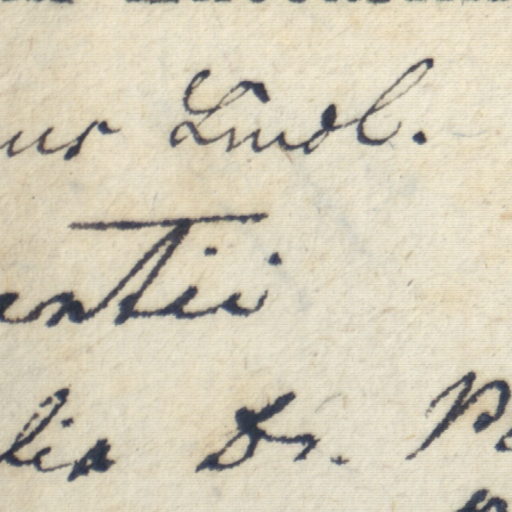 us Lindl.
entii
lia Dr. P